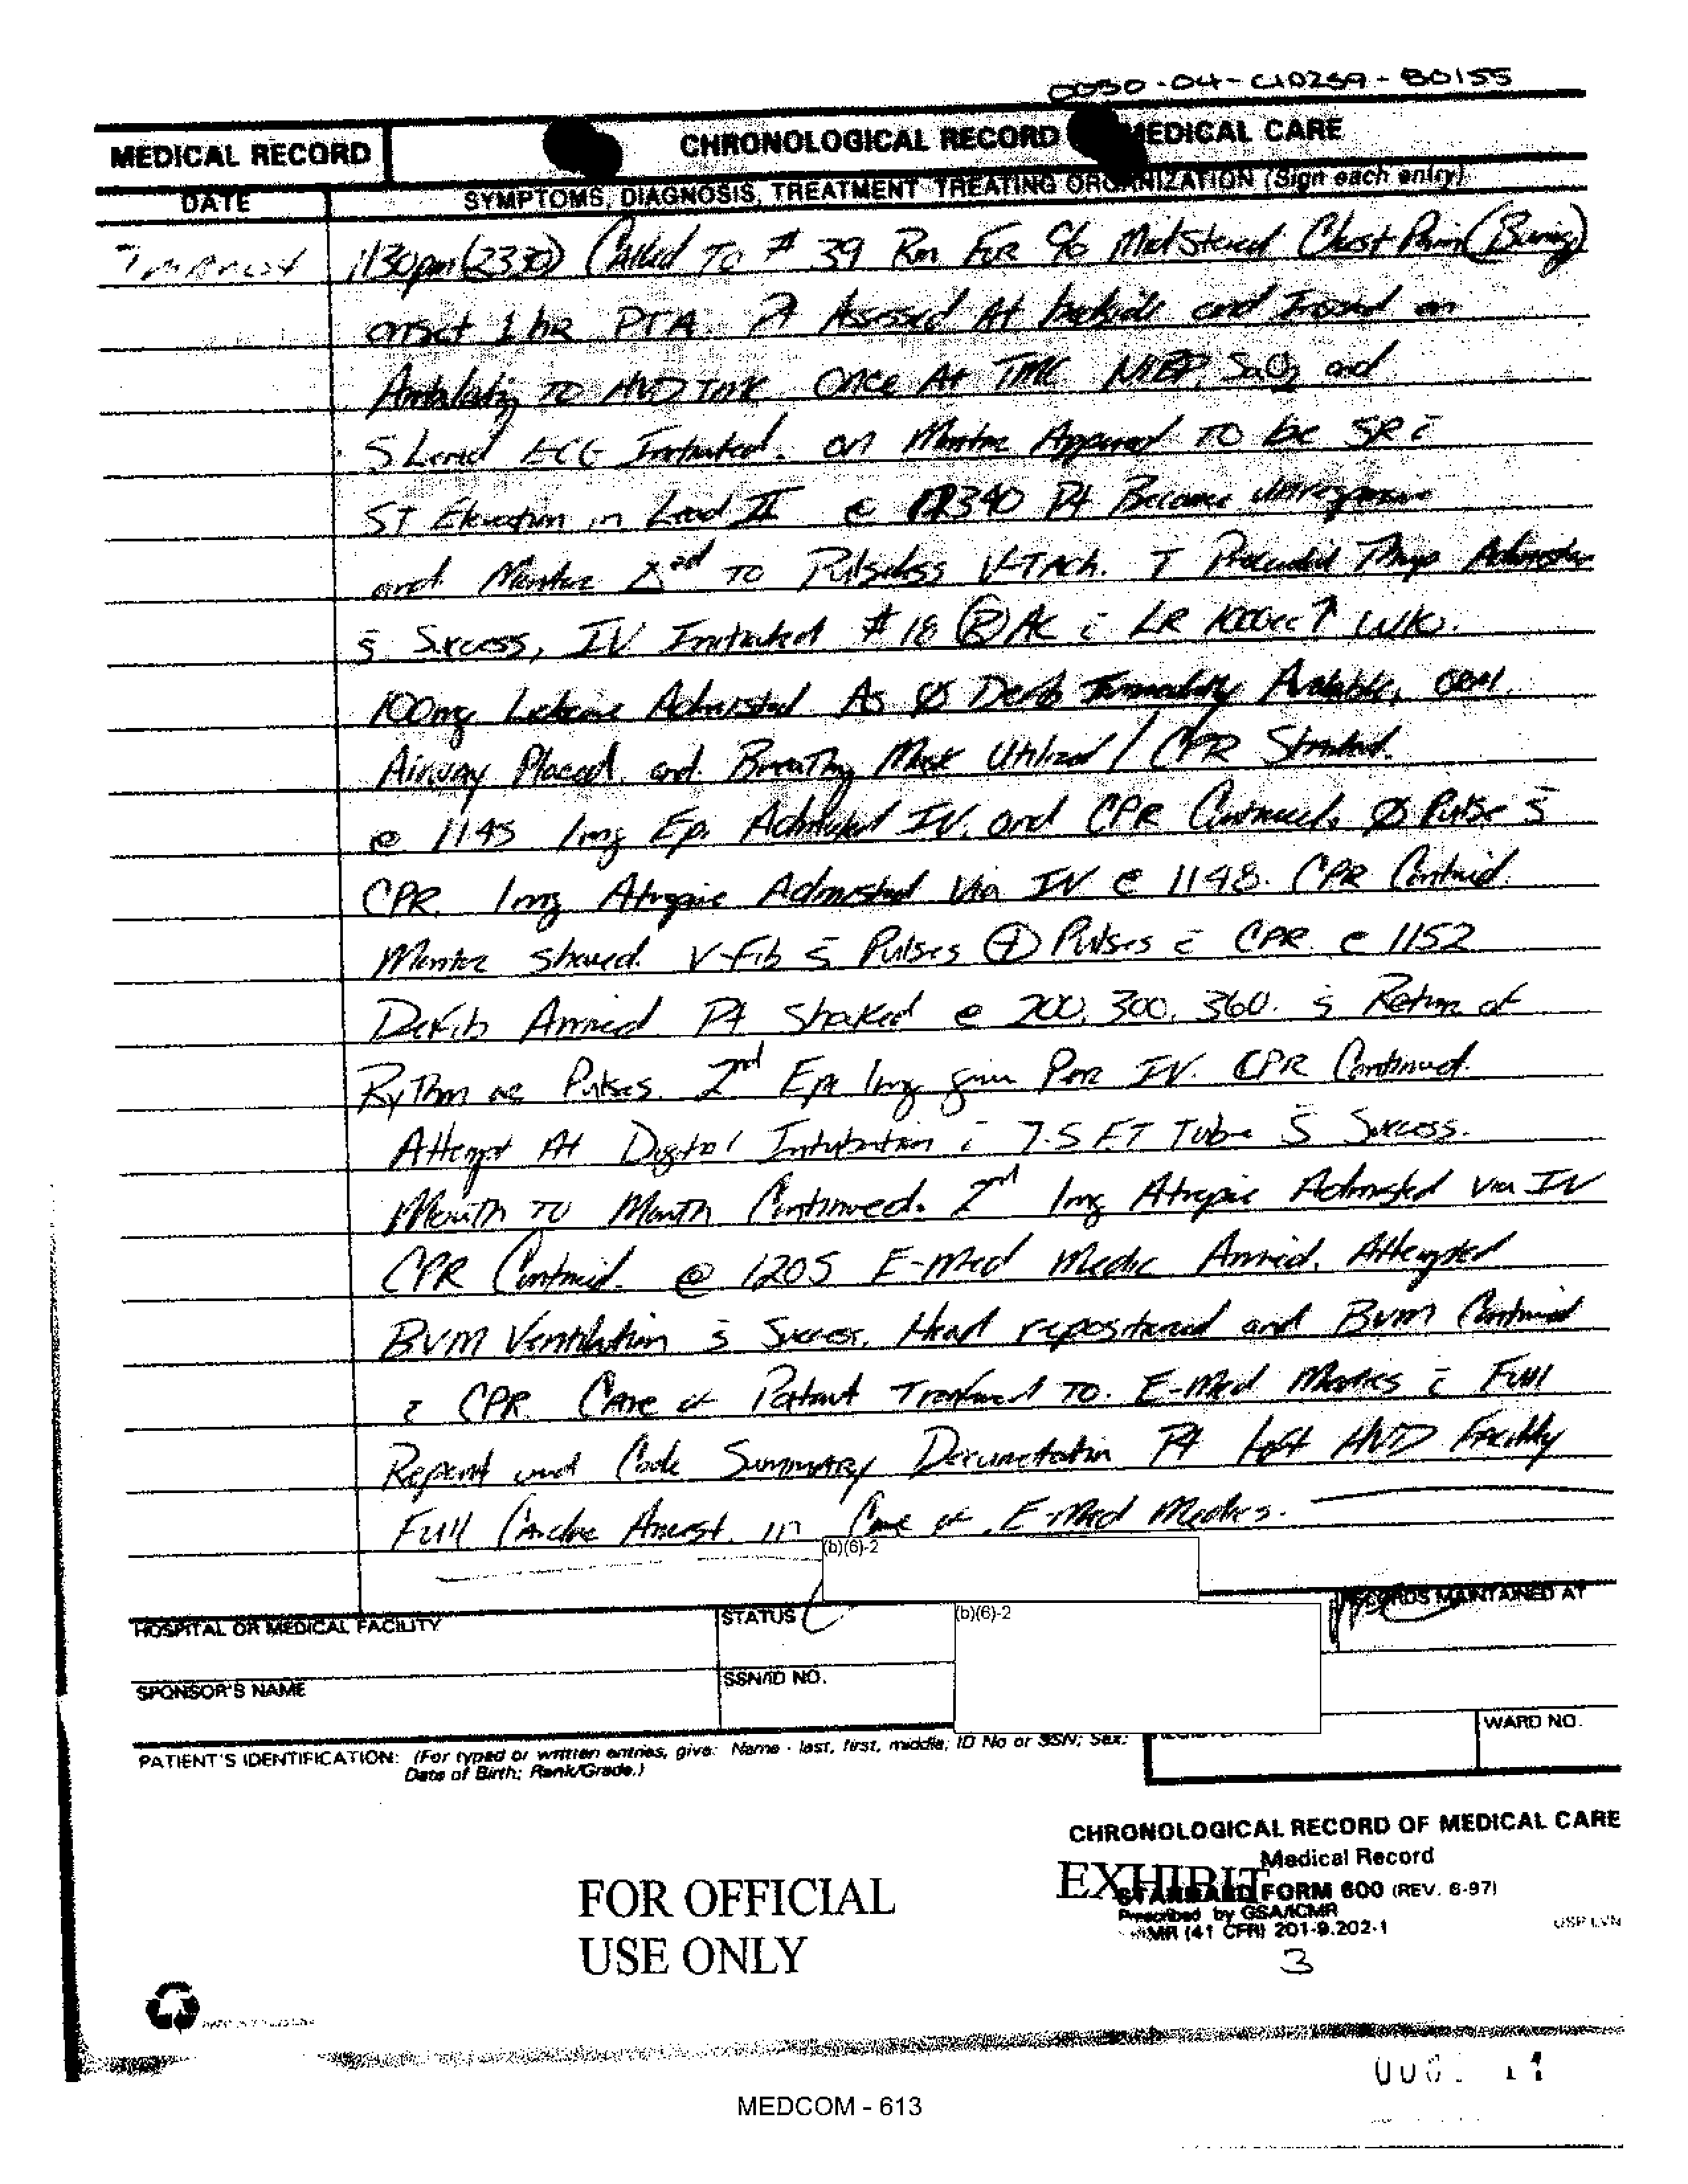 0030-04-CID259-80155
MEDICAL RECORD
CHRONOLOGICAL RECORD MEDICAL CARE
DATE
SYMPTOMS, DIAGNOSIS, TREATMENT TREATING ORGANIZATION (Sign each entry)
1130pm (2330) Called To # 39 Rm For c/o Chest Pain
onset 1 hr PTA. Pt Assessed At bedside and on
Ambulating TO TMC Once At TMC NIBP, SaO2 and
5 Lead ECG Initiated. on Monitor Appeared TO be SR c̄
ST Elevation in Lead II @ 2340 Pt Became Unresponsive
and Monitor Δ'ed TO Pulseless V-Tach. Thump
s̄ Success, IV Initiated # 18 Ⓡ AC c̄ LR 1000cc ↑ W/O.
100mg Administered As Ø Defib Immediately Available, oral
Airway Placed and Breathing Mask Utilized / CPR Started.
@ 1145 1mg Epi Administered IV. and CPR Continued. Ø Pulse s̄
CPR. 1mg Atropine Administered Via IV @ 1148. CPR Continued.
Monitor Showed V-Fib s̄ Pulses ⊕ Pulses c̄ CPR @ 1152
Defib Arrived Pt Shocked @ 200, 300, 360. s̄ Return of
Rythm or Pulses. 2nd Epi 1mg given Per IV. CPR Continued.
Attempt At Digital Intubation c̄ 7.5 ET Tube s̄ Success.
Mouth TO Mouth Continued. 2nd 1mg Atropine Administed via IV
CPR Continued. @ 1205 E-Med Medic Arrived. Attempted
BVM Ventilation s̄ Success. Head repositioned and BVM Continued
c̄ CPR. Care of Patient Transferred TO. E-Med Medics c̄ Full
Report and Code Summary Documentation Pt Left HVD Facility
Full Cardiac Arrest in Care of E-Med Medics.
(b)(6)-2
HOSPITAL OR MEDICAL FACILITY
STATUS
(b)(6)-2
RECORDS MAINTAINED AT
SPONSOR'S NAME
SSN/ID NO.
PATIENT'S IDENTIFICATION: (For typed or written entries, give: Name - last, first, middle; ID No or SSN; Sex;
Date of Birth; Rank/Grade.)
WARD NO.
CHRONOLOGICAL RECORD OF MEDICAL CARE
Medical Record
EXHIBIT
STANDARD FORM 600 (REV. 6-97)
Prescribed by GSA/ICMR
FIRMR (41 CFR) 201-9.202-1
USP LVN
FOR OFFICIAL
USE ONLY
3
MEDCOM - 613